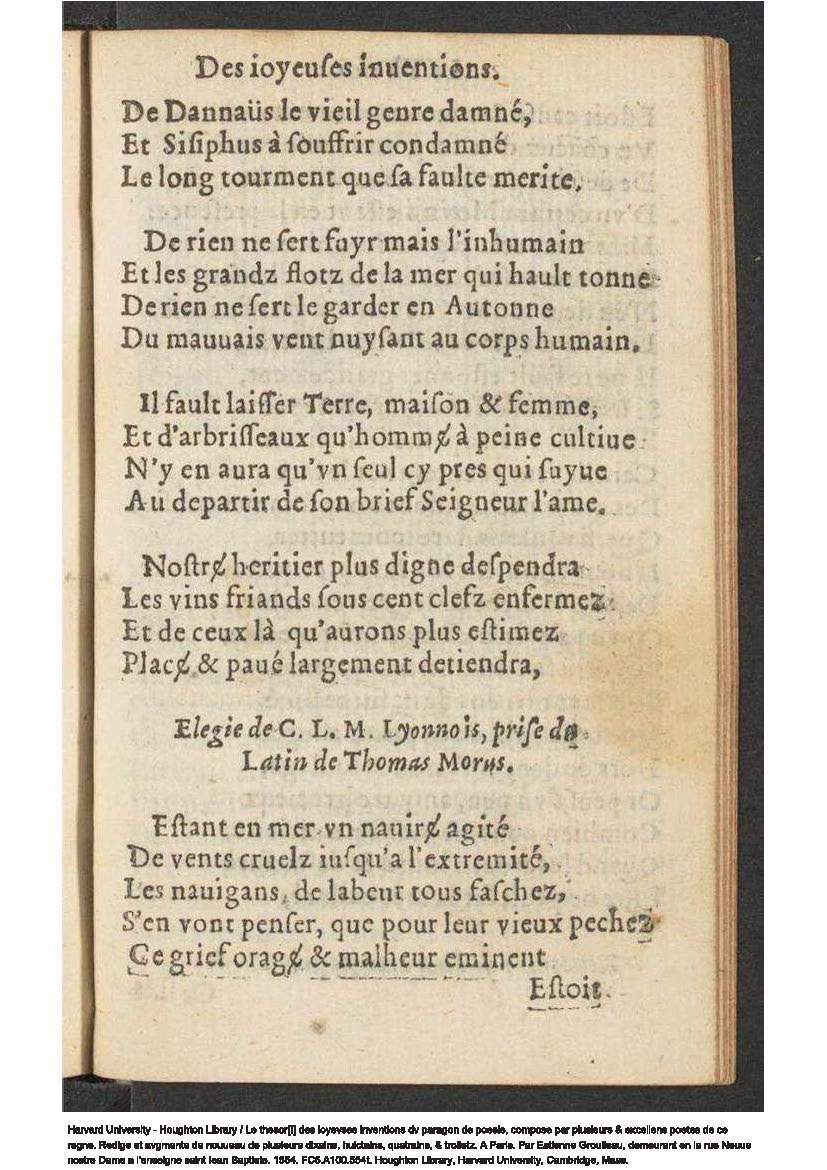 Des ioyeuſes inuentions.
De Dannaüs le vieil genre damné,
Et Siſiphus à ſouffrir condamné
Le long tourment que ſa faulte merite.
De rien ne ſert fuyr mais l'inhumain
Et les grandz flotz de la mer qui hault tonne
De rien ne ſert le garder en Autonne
Du mauuais vent nuyſant au corps humain.
Il fault laiſſer Terre, maiſon & femme,
Et d'arbriſſeaux qu'hommɇ à peine cultiue
N'y en aura qu'vn ſeul cy pres qui ſuyue
Au departir de ſon brief Seigneur l'ame.
Noſtrɇ heritier plus digne deſpendra
Les vins friands ſous cent clefz enfermez
Et de ceux là qu'aurons plus eſtimez
Placɇ & paué largement detiendra,
Elegie de C. L. M. Lyonnois, priſe du
Latin de Thomas Morus.
Eſtant en mer vn nauirɇ agité
De vents cruelz iuſqu'a l'extremité,
Les nauigans, de labeur tous faſchez,
S'en vont penſer, que pour leur vieux pechez
Ce grief oragɇ & malheur eminent
Eſtoit.
Harvard University - Houghton Library / Le thesor[!] des ioyevses inventions dv paragon de poesie, compose par plusieurs & excellens poetes de ce
regne. Redige et avgmente de nouueau de plusieurs dixains, huictains, quatrains, & trolletz. A Paris. Par Estienne Groulleau, demeurant en la rue Neuue
nostre Dame a l'enseigne saint Iean Baptiste. 1554. FC5.A100.554t. Houghton Library, Harvard University, Cambridge, Mass.